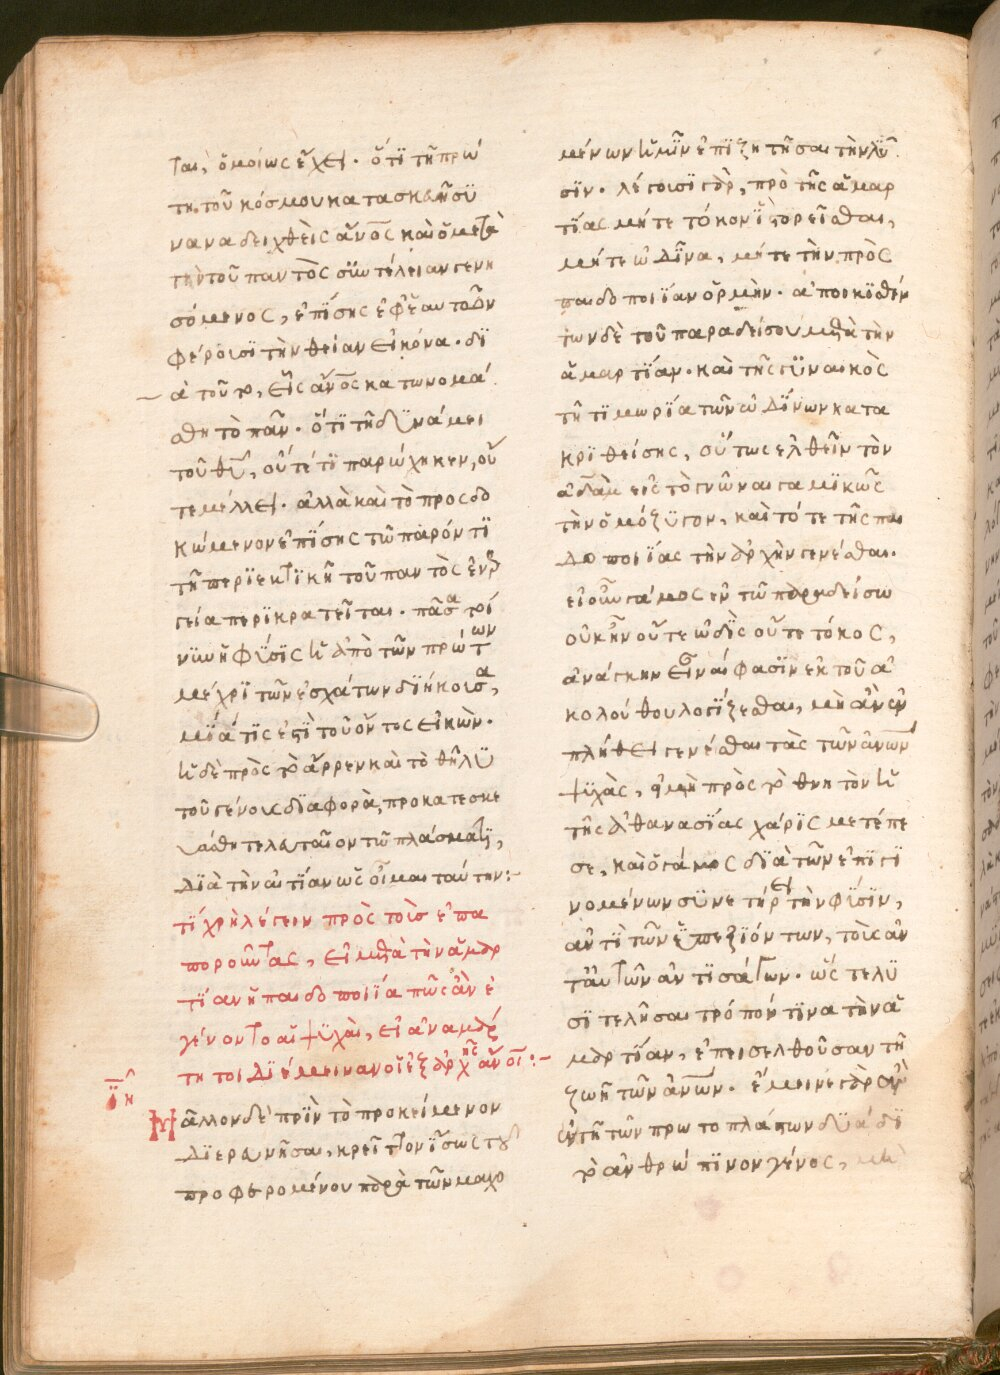 ται, ὁμοίως ἔχει. ὅτι τῇ πρώ
τῃ τοῦ κόσμου κατασκευῇ συ
ναναδειχθεὶς ἄνος καὶ ὁ μετὰ
τὴν τοῦ παντὸς συντέλειαν γενη
σόμενος, ἐπίσης ἐφ' ἑαυτῶν
φέρουσι τὴν θείαν εἰκόνα. δϊ
ὰ τοῦτο, εἷς ἄνος κατωνομά
σθη τὸ πᾶν. ὅτι τῇ δυνάμει
τοῦ θυ, οὔτέ τι παρώχηκεν, οὔ
τε μέλλει. ἀλλὰ καὶ τὸ προσδο
κώμενον ἐπίσης τῷ παρόντι
τῇ περιεκτικῇ τοῦ παντὸς ἐνερ
γείᾳ περικρατεῖται. πᾶσα τοί
νυν ἡ φύσις ἡ ἀπὸ τῶν πρώτων
μέχρι τῶν ἐσχάτων διήκουσα,
μία τίς ἐστι τοῦ ὄντος εἰκών.
ἡ δὲ πρὸς τὸ ἄρρεν καὶ τὸ θῆλυ
τοῦ γένους διαφορὰ, προκατεσκε
υάσθη τελευταῖον τῷ πλάσματι,
διὰ τὴν αἰτίαν ὡς οἶμαι ταύτην:-
τί χρὴ λέγειν πρὸς τοὺς ἐπα
ποροῦντας, εἰ μετὰ τὴν ἁμαρ
τίαν ἡ παιδοποιΐα πῶς ἂν ἐ
γένοντο αἱ ψυχαὶ, εἰ ἀναμάρ
τητοι διέμειναν οἱ ἐξ ἀρχῆς ἄνοι:-
ιη
Μᾶλλον δὲ πρὶν τὸ προκείμενον
διερευνῆσαι, κρεῖττον ἴσως του
προφερομένου παρὰ τῶν μαχο
μένων ἡμῖν ἐπιζητῆσαι τὴν λύ
σιν. λέγουσι γὰρ, πρὸ τῆς ἁμαρ
τίας μήτε τόκον ἱστορεῖσθαι,
μήτε ὠδῖνα, μήτε τὴν πρὸς
παιδοποιΐαν ὁρμὴν. ἀποικισθέν
των δὲ τοῦ παραδείσου μετὰ τὴν
ἁμαρτίαν. καὶ τῆς γυναικὸς
τῇ τιμωρίᾳ τῶν ὠδίνων κατα
κριθείσης, οὕτως ἐλθεῖν τὸν
ἀδὰμ εἰς τὸ γνῶναι γαμικῶς
τὴν ὁμόζυγον, καὶ τότε τῆς παι
δοποιΐας τὴν ἀρχὴν γενέσθαι.
εἰ οὖν γάμος ἐν τῷ παραδείσῳ
οὐκ ἦν οὔτε ὠδὶς οὔτε τόκος,
ἀνάγκην εἶναί φασιν ἐκ τοῦ ἀ
κολούθου λογίζεσθαι, μὴ ἂν ἐν
πλήθει γενέσθαι τὰς τῶν ἀνων
ψυχὰς, εἰ μὴ πρὸς τὸ θνητὸν ἡ
τῆς ἀθανασίας χάρις μετέπε
σε, καὶ ὁ γάμος διὰ τῶν ἐπιγι
νομένων συνετήρει τὴν φύσιν,
ἀντὶ τῶν ὑπεξιόντων, τοὺς ἀν
τ' αὐτῶν ἀντισάγων. ὥστε λυ
σιτελῆσαι τρόπον τινα τὴν ἁ
μαρτίαν, ἐπεισελθοῦσαν τῇ
ζωῇ τῶν ἀνων. ἔμεινε γὰρ ἂν
ἐν τῇ τῶν πρωτοπλάστων δυάδι
τὸ ἀνθρώπινον γένος,